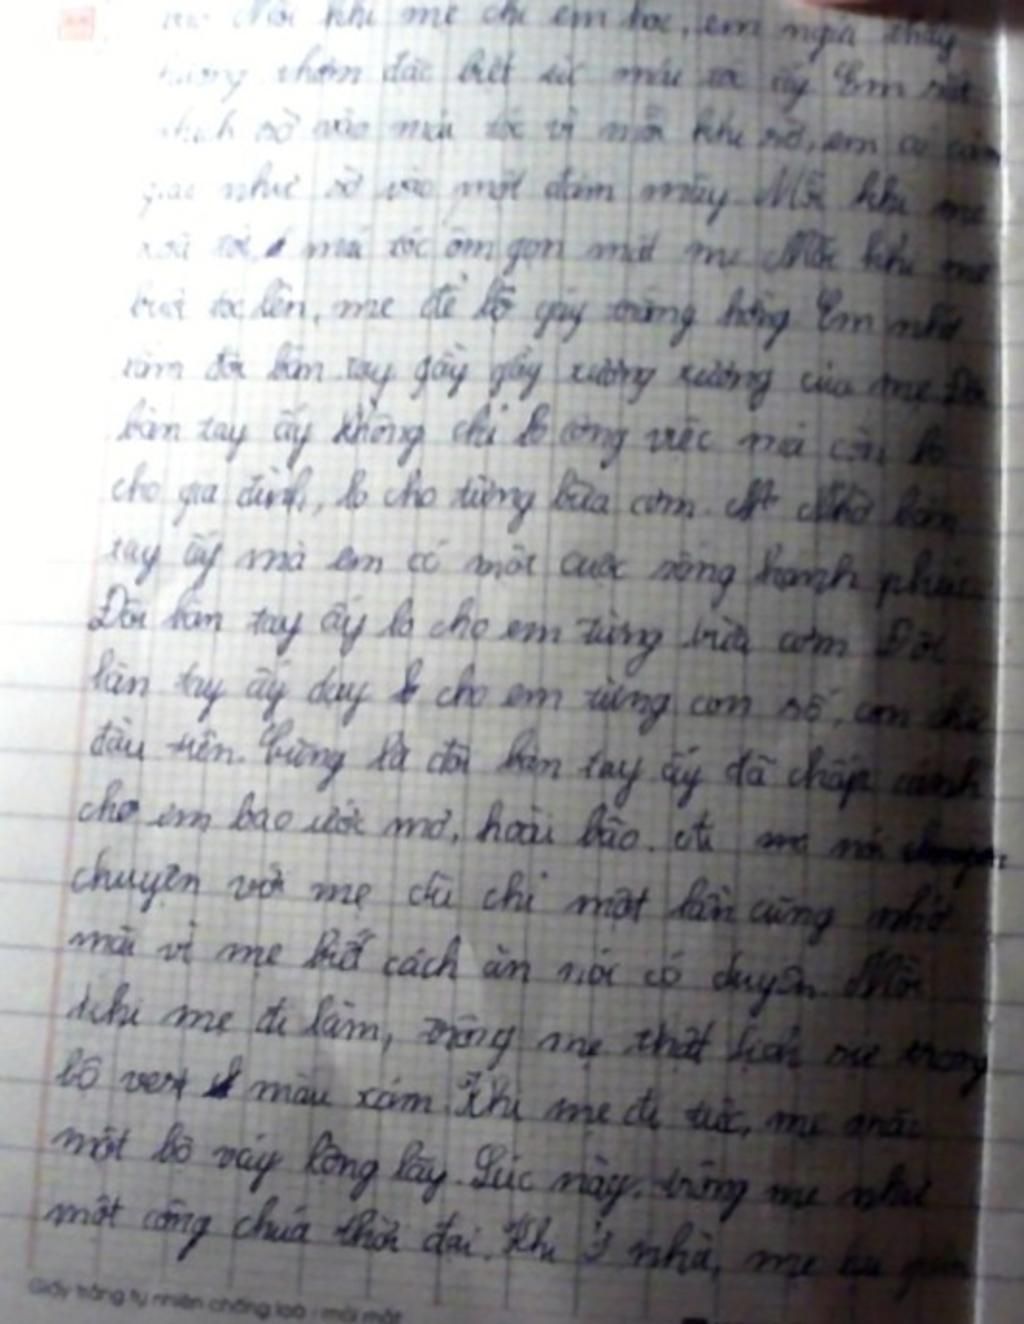 Mỗi khi mẹ chỉ em học, em ngửi thấy
hương thơm đặc biệt từ mái tóc ấy Em rất
thích sờ vào mái tóc vì mỗi khi sờ, em có cảm
giác như sờ vào một đám mây Mỗi khi mẹ
xoã tóc, mái tóc ôm gọn mặt mẹ Mỗi khi mẹ
búi tóc lên, mẹ để lộ gáy trắng hồng Em nhớ
đôi bàn tay gầy gầy xương xương của mẹ Đôi
bàn tay ấy không chỉ lo công việc mà còn lo
cho gia đình, lo cho từng bữa cơm. Nhờ bàn
tay ấy mà em có một cuộc sống hạnh phúc
Đôi bàn tay ấy lo cho em từng bữa cơm Đôi
bàn tay ấy dạy cho em từng con số, con chữ
đầu tiên. Cũng là đôi bàn tay ấy đã chắp cánh
cho em bao ước mơ, hoài bão. Ai mà nói
chuyện với mẹ dù chỉ một lần cũng nhớ
mãi vì mẹ biết cách ăn nói có duyên. Mỗi
khi mẹ đi làm, trông mẹ thật lịch sự trong
bộ vest màu xám. Khi mẹ đi tiệc, mẹ mặc
một bộ váy lộng lẫy. Lúc này, trông mẹ như
một công chúa thời đại. Khi ở nhà, mẹ
Giấy trắng tự nhiên chống loá - mỏi mắt